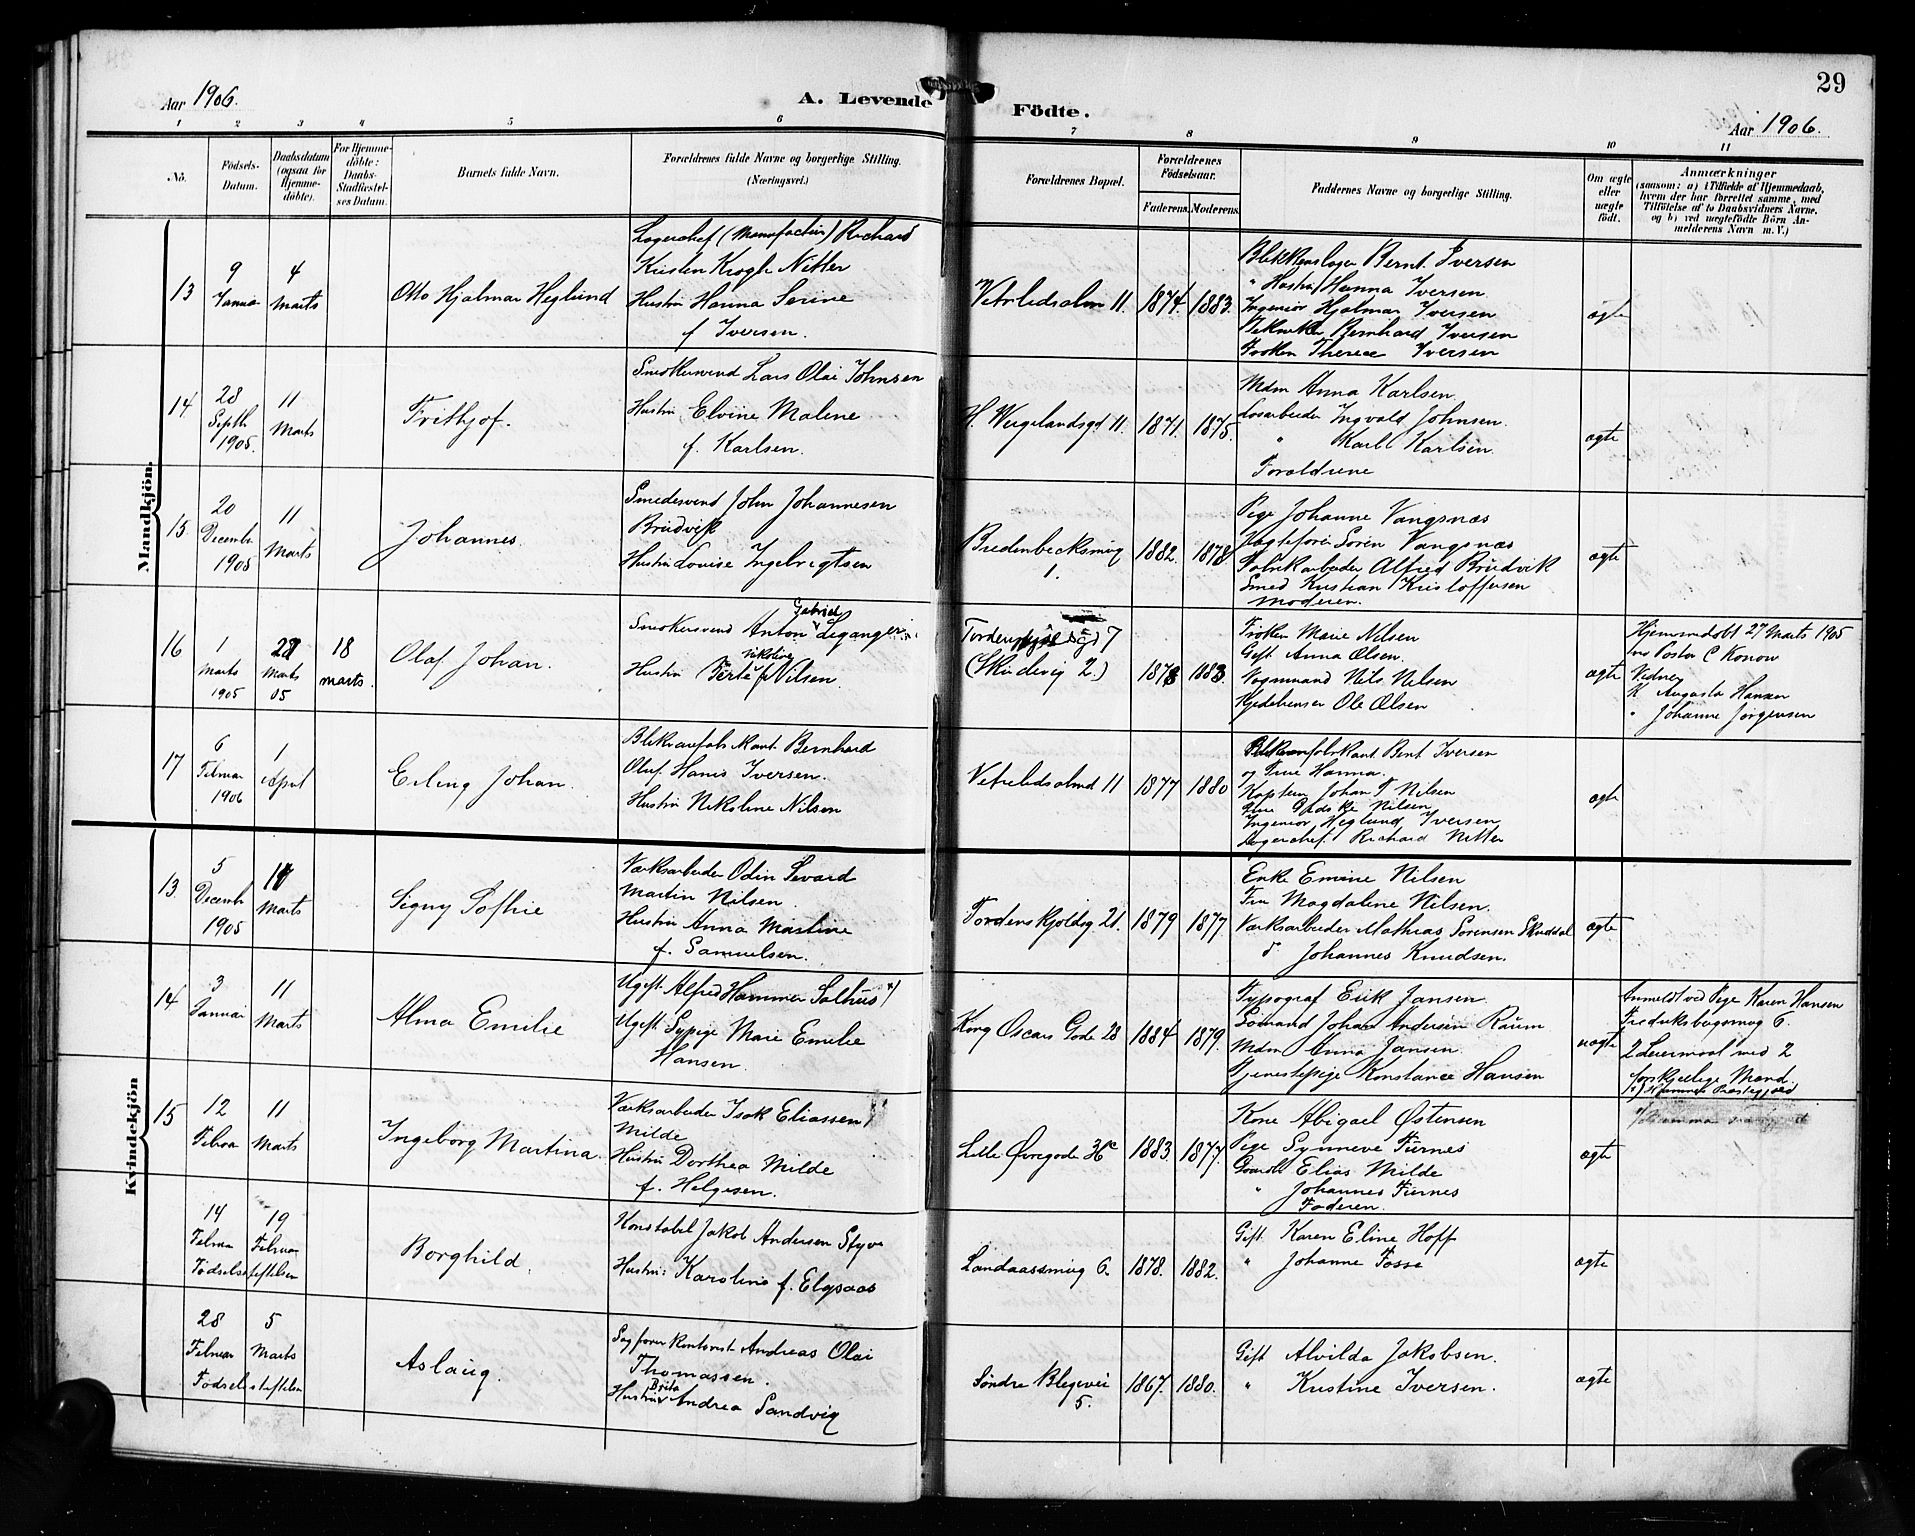 29
Aar 1906.
A. Levende Födte.
Aar 1906.
1 2 3 4 5 6 7 8 9 10 11
No.
Födsels-Datum.
Daabsdatum (ogsaa for Hjemmedöbte).
For Hjemmedöbte: Daabs-Stadfæstelses Datum.
Barnets fulde Navn.
Forældrenes fulde Navne og borgerlige Stilling.
(Næringsvei.)
Forældrenes Bopæl.
Forældrenes Födselsaar.
Faderens. Moderens.
Faddernes Navne og borgerlige Stilling.
Om ægte eller uægte födt.
Anmærkninger
(saasom: a) i Tilfælde af Hjemmedaab, hvem der har forrettet samme, med Tilföielse af to Daabsvidners Navne, og b) ved uægtefödte Börn Anmelderens Navn m. V.)
Mandkjön.
13
9 Januar
4 Marts
Otto Hjalmar Heglund
Lagerchef (Manufactur) Richard
Kirsten Krogh Nitter
Hustru Hanna Serine
f Iversen.
Vetrlidsalm 11.
1874.
1883.
Blikkenslager Bernt Iversen
" Hustru Hanna Iversen
Ingeniör Hjalmar Iversen
Bernhard Iversen
Fröken Therese Iversen
ægte
14
28 Septb 1905.
11 Marts
Frithjof.
Snedkersvend Lars Olai Johnsen
Hustru Elvine Malene
f. Karlsen.
H. Wergelandsgd 11.
1871.
1875.
Mdm Anna Karlsen.
Løsarbeider Ingvald Johnsen.
" Karl Karlsen.
Forældrene
ægte
15.
20 Decemb 1905
11 Marts
Johannes.
Smedesvend John Johannesen
Brudvik
Hustru Lovise Ingebrigtsen
Bredenbecksmug
1.
1882.
1878
Pige Johanne Vangsnæs
Søren Vangsnæs
Fabrikarbeider Alfred Brudvik
Smed Kristian Kristoffersen
Moderen.
ægte
16
1 Marts 1905
27 Marts 05
18 marts.
Olaf Johan.
Snedkersvend Anton Gabriel Leganger
Hustru Berte Nikoline f Nilsen.
Tordenskjoldsgd 7
(Skudevig 2.)
1878
1883.
Fröken Marie Nilsen
Gift Anna Olsen.
Vognmand Nils Nilsen
Ole Olsen
ægte
Hjemmedöbt 27 Marts 1905
av Pastor C Konow
Vidner
K Augusta Hansen
" Johanne Jørgensen
17
6 Februar 1906
1 April
Erling Johan.
Blikvarefabrikant Bernhard
Oluf Hanis Iversen.
Hustru Nikoline Nilsen
Vetrlidsalmd 11
1877
1880
Blikvarefabrikant Bernt Iversen
og Frue Hanna.
Kaptein Johan T Nilsen
Frue Nilsen
Ingeniör Heglund Iversen
Lagerchef. Richard Nitter
ægte
Kvindekjön
13.
5 Decemb 1905
11 Marts
Signy Sofhie
Værksarbeider Odin Sevard
Martin Nilsen.
Hustru Anna Martine
f. Samuelsen.
Tordenskjoldsg 21.
1879
1877.
Enke Emine Nilsen
Fru Magdalene Nilsen.
Værksarbeider Mathias Sørensen Skuddal
" Johannes Knudsen.
ægte
14
3 Januar
11 Marts
Alma Emilie
Ugift Alfred Hammer Salhus x)
Ugift Sypige Marie Emilie
Hansen.
Kong Oscars Gade 28
1884
1879.
Typograf Erik Jansen
Sömand Johan Andersen Raum
Mdm Anna Jansen.
Tjenestepige Konstance Hansen
uægte
Anmeldt ved Pige Karen Hansen
Fredriksbergsmug 6.
2 Leiermaal med 2
forskjellige Mænd
x) Hammer Præstegjæld
15
12 Febru
11 Marts
Ingeborg Martina.
Værksarbeider Isak Eliassen
Milde
Hustru Dorthea Milde
f. Helgesen.
Lille Övregade 36c
1883.
1877.
Kone Abigael Östensen
Pige Synneve Furnes
Gaardb Elias Milde
" Johannes Furnes
Faderen.
ægte
14 Februar
19 Februar
Födselsstiftelsen
Borghild.
Konstabel Jakob Andersen Styve
Hustru: Karoline f. Elgsaas
Landaassmug 6.
1878.
1882.
Gift Karen Eline Hoff
" Johanne Fosse
ægte
28 Februar
5 Marts
Födselsstiftelsen
Aslaug.
Sagförer Kontorist Andreas Olai
Thomassen.
Hustru Brita Andrea Sandvig
Søndre Blegevei
5.
1867.
1880.
Gift Alvilda Jakobsen.
" Kristine Iversen.
ægte